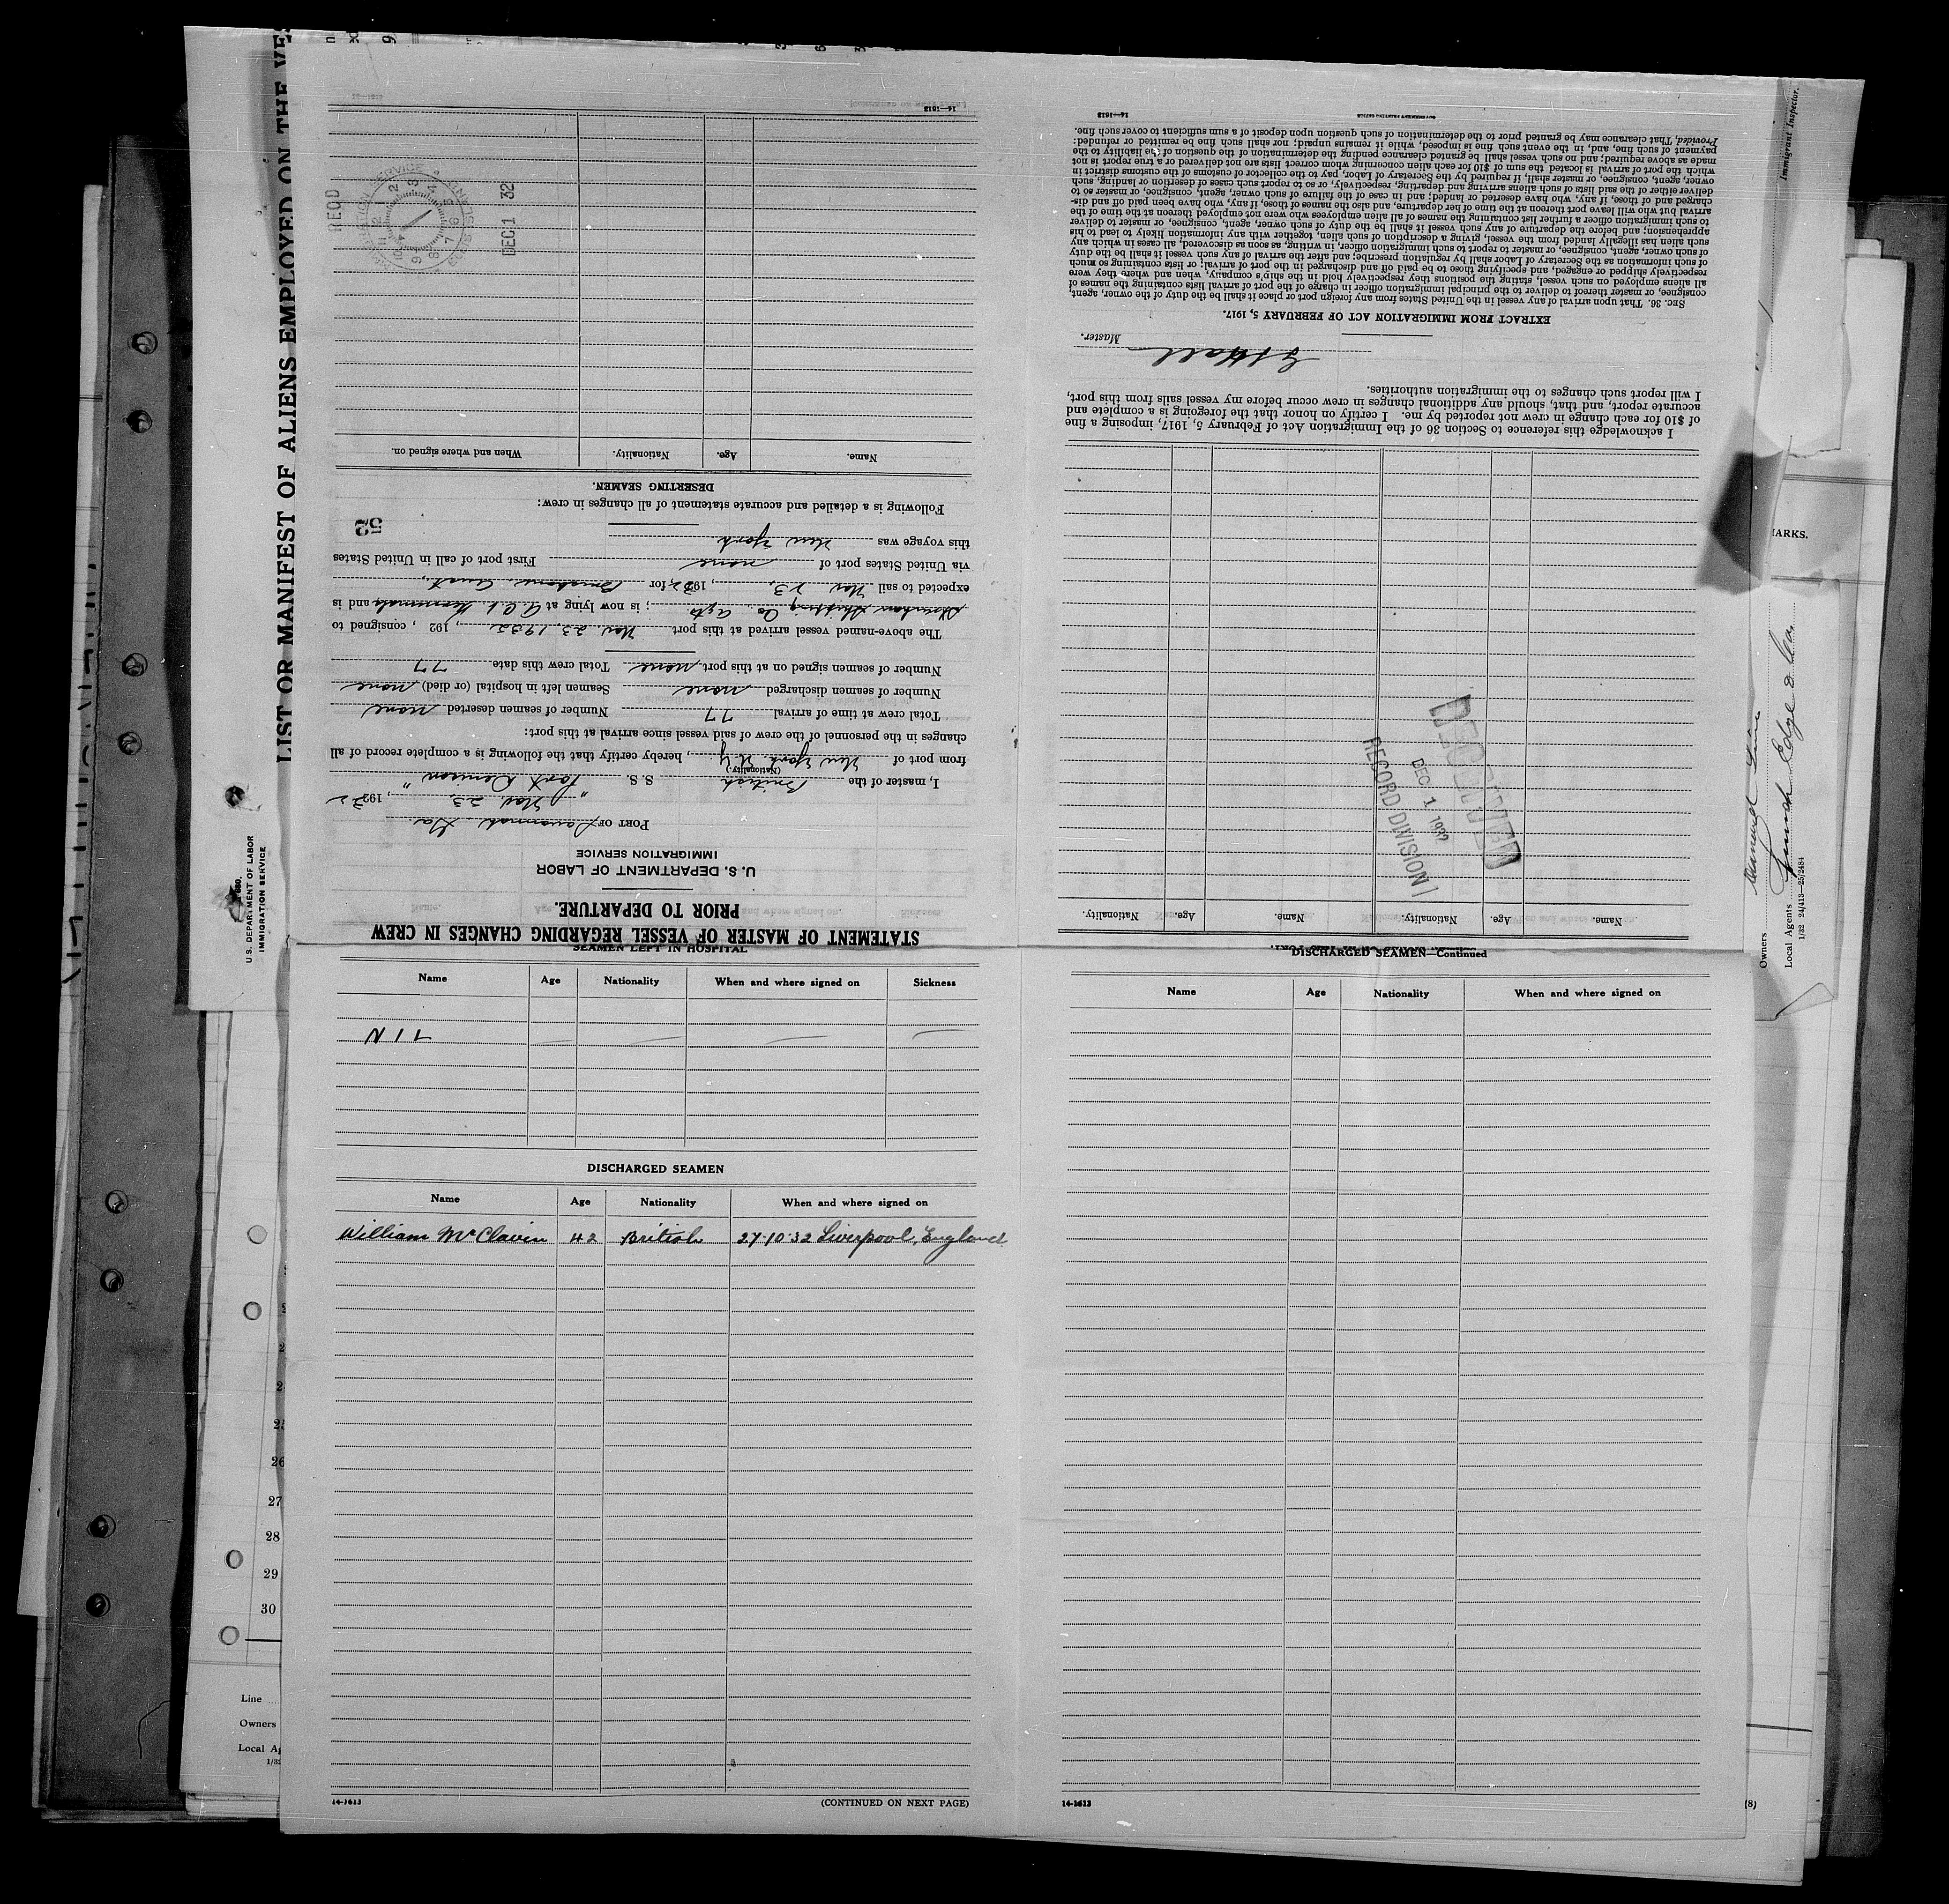 LIST OR MANIFEST OF ALIENS EMPLOYED ON THE VES
U. S. DEPARTMENT OF LABOR
IMMIGRATION SERVICE
STATEMENT OF MASTER OF VESSEL REGARDING CHANGES IN CREW
PRIOR TO DEPARTURE.
U. S. DEPARTMENT OF LABOR
IMMIGRATION SERVICE
PORT OF Savannah Ga.
Nov 23, 1932
I, master of the British S. S. "Port Denison"
(Nationality.)
from port of New York N Y, hereby certify that the following is a complete record of all
changes in the personnel of the crew of said vessel since arrival at this port:
Total crew at time of arrival 77 Number of seamen deserted none
Number of seamen discharged none Seamen left in hospital (or died) none
Number of seamen signed on at this port none Total crew this date 77
The above-named vessel arrived at this port Nov. 23, 1932, 192 , consigned to
Strachan Shipping Co. Agts; is now lying at A C L Terminals and is
expected to sail Nov 23, 1932, for Brisbane Aust.,
via United States port of none First port of call in United States
this voyage was New York
52
Following is a detailed and accurate statement of all changes in crew:
DESERTING SEAMEN.
Name. Age. Nationality. When and where signed on.
REOD
DEC 1 32
14—1613
Name. Age. Nationality. Name. Age. Nationality.
RECEIVED
DEC 1 1932
RECORD DIVISION
I acknowledge this reference to Section 36 of the Immigration Act of February 5, 1917, imposing a fine
of $10 for each change in crew not reported by me. I certify on honor that the foregoing is a complete and
accurate report, and that, should any additional changes in crew occur before my vessel sails from this port,
I will report such changes to the immigration authorities.
Hall
Master.
EXTRACT FROM IMMIGRATION ACT OF FEBRUARY 5, 1917.
SEC. 36. That upon arrival of any vessel in the United States from any foreign port or place it shall be the duty of the owner, agent,
consignee, or master thereof to deliver to the principal immigration officer in charge of the port of arrival lists containing the names of
all aliens employed on such vessel, stating the positions they respectively hold in the ship's company, when and where they were
respectively shipped or engaged, and specifying those to be paid off and discharged in the port of arrival; or lists containing so much
of such information as the Secretary of Labor shall by regulation prescribe; and after the arrival of any such vessel it shall be the duty
of such owner, agent, consignee, or master to report to such immigration officer, in writing, as soon as discovered, all cases in which any
such alien has illegally landed from the vessel, giving a description of such alien, together with any information likely to lead to his
apprehension; and before the departure of any such vessel it shall be the duty of such owner, agent, consignee, or master to deliver
to such immigration officer a further list containing the names of all alien employees who were not employed thereon at the time of the
arrival but who will leave port thereon at the time of her departure, and also the names of those, if any, who have been paid off and dis-
charged and of those, if any, who have deserted or landed; and in case of the failure of such owner, agent, consignee, or master so to
deliver either of the said lists of such aliens arriving and departing, respectively, or so to report such cases of desertion or landing, such
owner, agent, consignee, or master shall, if required by the Secretary of Labor, pay to the collector of customs of the customs district in
which the port of arrival is located the sum of $10 for each alien concerning whom correct lists are not delivered or a true report is not
made as above required; and no such vessel shall be granted clearance pending the determination of the question of the liability to the
payment of such fine, and, in the event such fine is imposed, while it remains unpaid; nor shall such fine be remitted or refunded:
Provided, That clearance may be granted prior to the determination of such question upon deposit of a sum sufficient to cover such fine.
GOVERNMENT PRINTING OFFICE
14—1613
Immigrant Inspector.
Owners
Local Agents
1/32 24/413—25/2484
SEAMEN LEFT IN HOSPITAL
Name Age Nationality When and where signed on Sickness
NIL
DISCHARGED SEAMEN
Name Age Nationality When and where signed on
William McClavin 42 British 27·10·32 Liverpool, England
14-1613
(CONTINUED ON NEXT PAGE)
DISCHARGED SEAMEN—Continued
Name Age Nationality When and where signed on
14-1613
(8)
26
27
28
29
30
Line
Owners